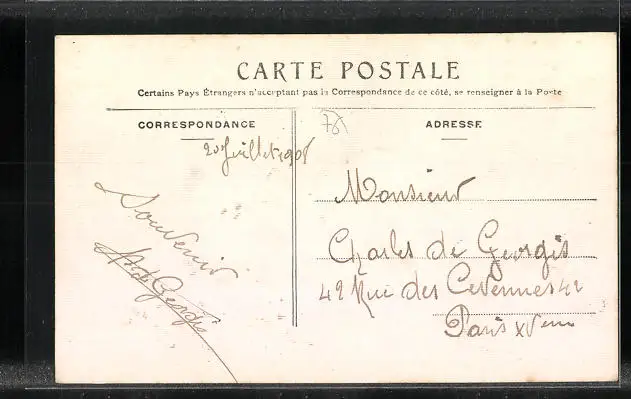 CARTE POSTALE
Certains Pays Étrangers n'acceptant pas la Correspondance de ce côté, se renseigner à la Poste
CORRESPONDANCE
ADRESSE
20 Juillet 1908
Souvenir
de Georgis
Monsieur
Charles de Georgis
42 Rue des Cevennes 42
Paris XVeme